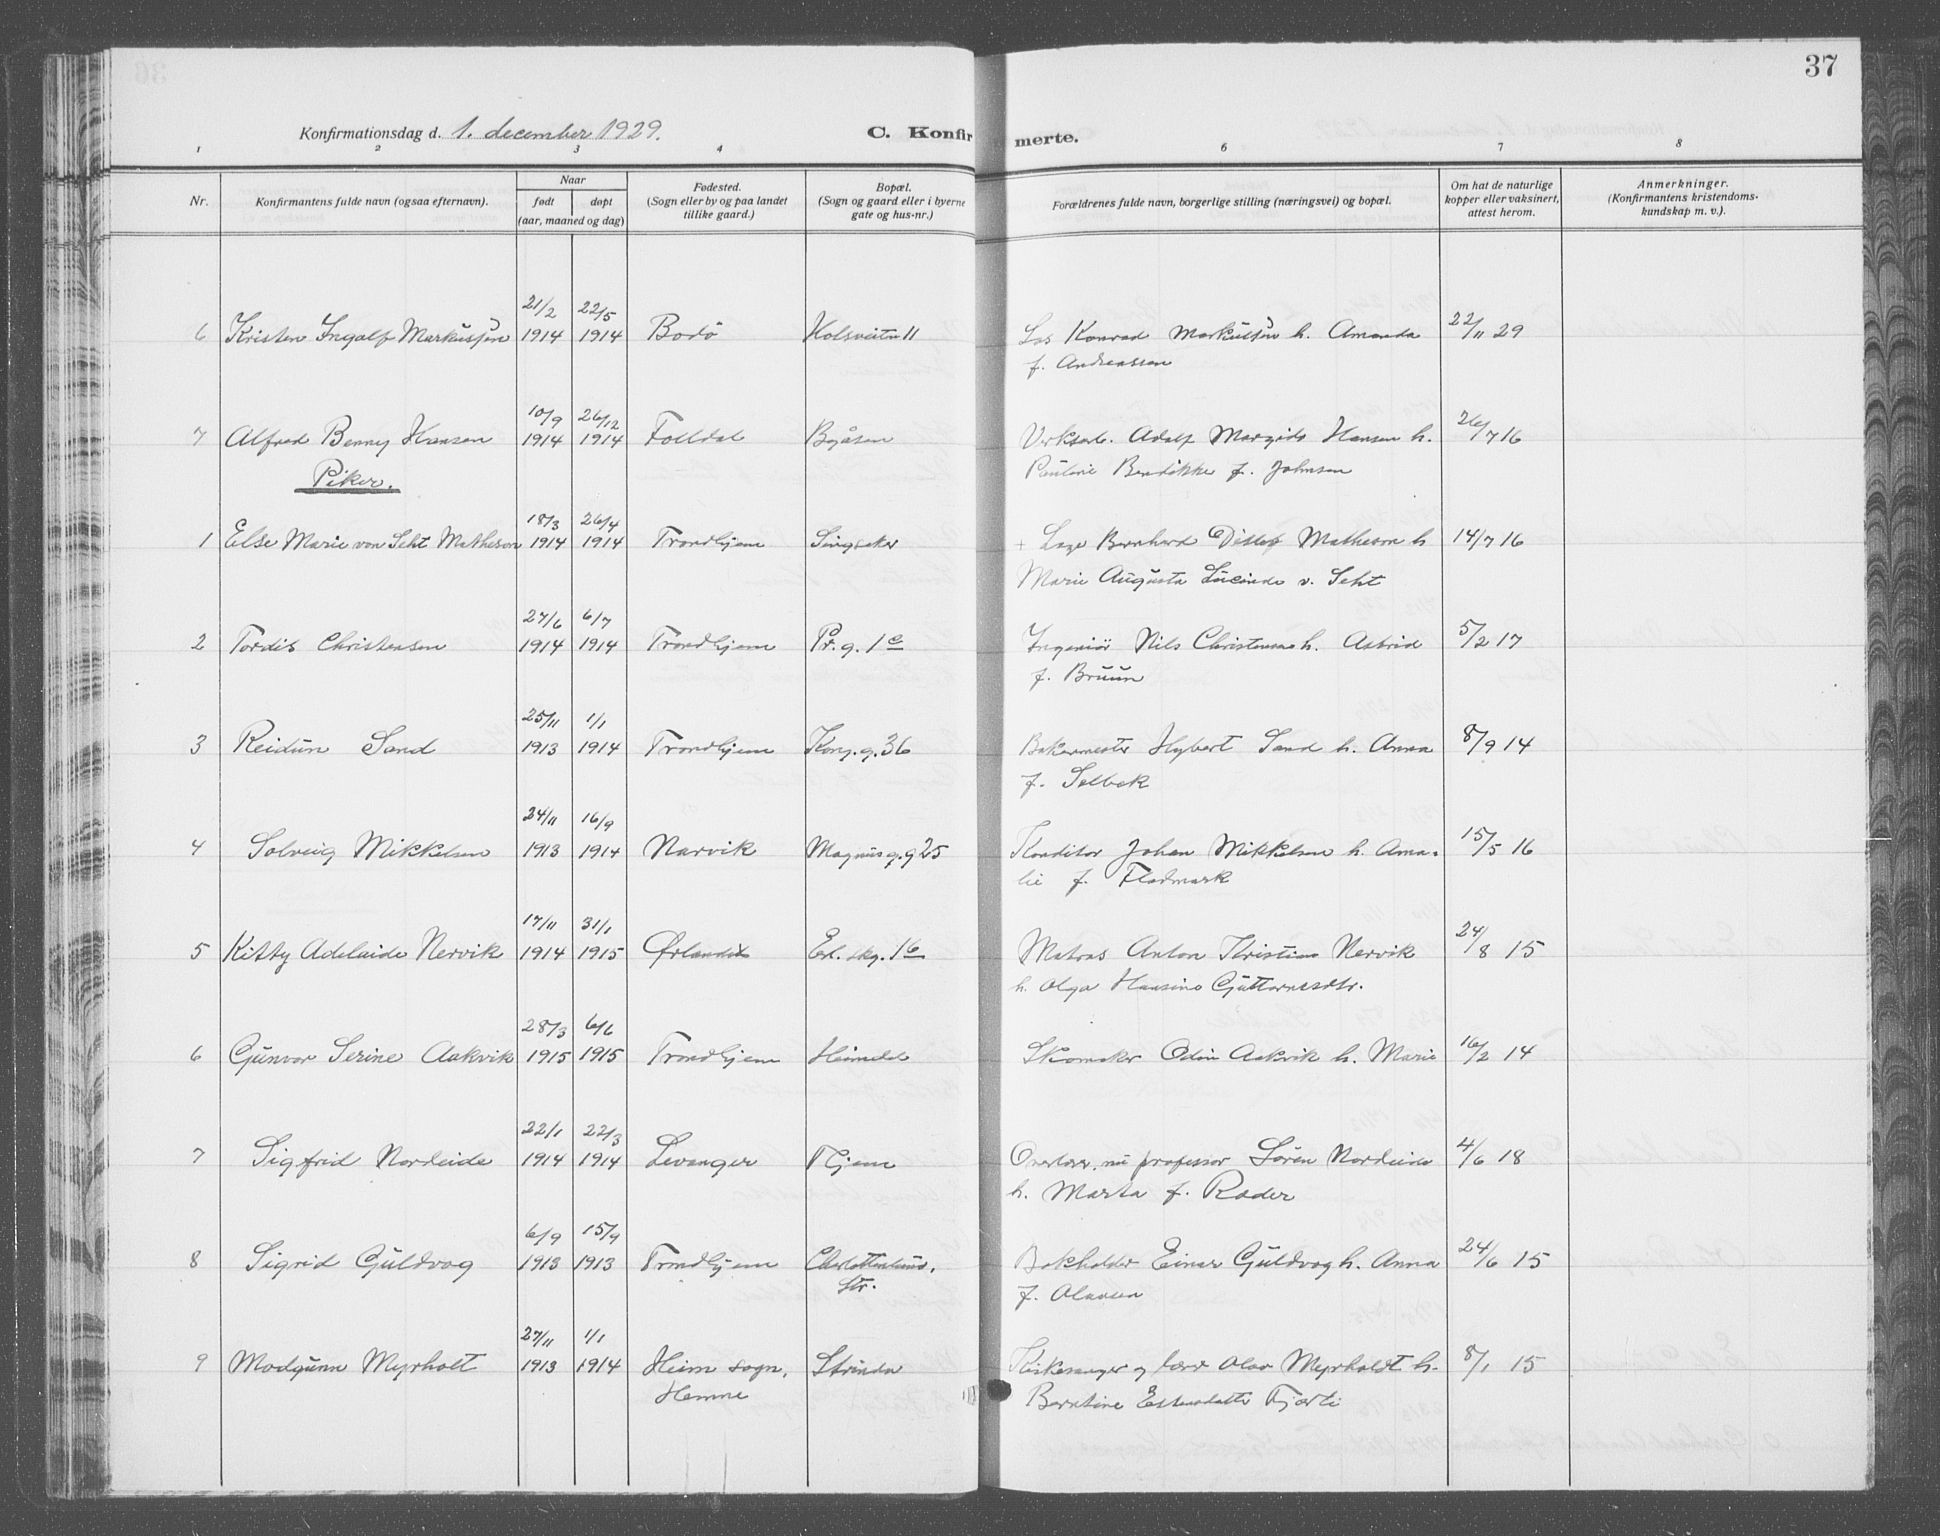 37
Konfirmationsdag d. 1. december 1929.
C. Konfirmerte.
1 2 3 4 6 7 8
Nr.
Konfirmantens fulde navn (ogsaa efternavn).
Naar
født døpt
(aar, maaned og dag)
Fødested.
(Sogn eller by og paa landet
tillike gaard.)
Bopæl.
(Sogn og gaard eller i byerne
gate og hus-nr.)
Forældrenes fulde navn, borgerlige stilling (næringsvei) og bopæl.
Om hat de naturlige
kopper eller vaksinert,
attest herom.
Anmerkninger.
(Konfirmantens kristendoms-
kundskap m. v.).
21/2 22/5 22/11 29
6 Kristen Ingolf Markussen 1914 1914 Bodö Holsveita 11 Los Konrad Markussen h. Amanda
f. Andreassen
10/9 26/12 26/7 16
7 Alfred Benny Hansen 1914 1914 Folldal Byåsen Verksarb. Adolf Hansen h.
Piker.
Bendikke f. Johnsen
18/3 26/4
1 Else Marie von Seht Matheson 1914 1914 Trondhjem Singsaker + Bernhard Ditlev Matheson h 14/7 16
Marie Augusta Lucinde v. Seht
27/6 6/7
2 Tordis Christensen 1914 1914 Trondhjem Pr. g. 1c Ingeniör Nils Christensen h. Astrid 5/2 17
f. Bruun
25/11 1/1
3 Reidun Sand 1913 1914 Trondhjem Kong. g. 36 Bakermester Hybert Sand h. Anna 8/9 14
f. Selbek
24/11 16/9
4 Solveig Mikkelsen 1913 1914 Narvik Magnus g. g 25 Konditor Johan Mikkelsen h. Ama- 15/5 16
lie f. Fladmark
17/11 31/1
5 Kitty Adelaide Nervik 1914 1915 Ørlandet Erl. skg. 1b Matros Anton Kristian Nervik 24/8 15
h. Olga Hansine Guttormsdtr.
28/3 6/6
6 Gunvor Serine Aakvik 1915 1915 Trondhjem Heimdal Skomaker Odin Aakvik h. Marie 16/2 14
22/1 22/3
7 Sigfrid Nordeide 1914 1914 Levanger Thjem Overlærer, nu professor Sören Nordeide 4/6 18
h. Marta f. Rader
6/9 15/9
8 Sigrid Guldvog 1913 1913 Trondhjem Charlottenlund. Bokholder Einar Guldvog h. Anna 24/6 15
Str.
f. Olausen
27/11 1/1
9 Modgunn Myrholt 1913 1914 Heim sogn, Strinda Kirkesanger og lærer Olav Myrholdt h. 8/1 15
Hemne
Berntine Estensdatter